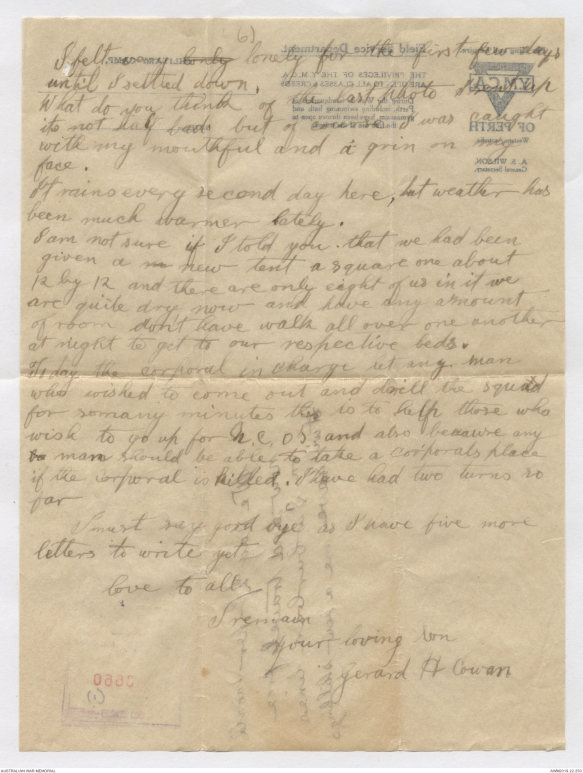 6)
I felt a bit lonely for the first few days
until I settled down.
What do you think of the last photo I sent up
its not half bad but of course I was caught
with my mouthful and a grin on
face.
It rains every second day here, but weather has
been much warmer lately.
I am not sure if I told you that we had been
given a new tent a square one about
12 by 12 and there are only eight of us in it we
are quite dry now and have any amount
of room dont have walk all over one another
at night to get to our respective beds.
To day the corporal in charge let any man
who wished to come out and drill the squad
for somany minutes this is to help those who
wish to go up for N.C.OS. and also because any
man should be able to take a corporals place
if the corporal is killed. I have had two turns so
far
I must say good bye as I have five more
letters to write yet
love to all
I remain
Your loving son
Gerard H Cowan
Field Service Department
Y.M.C.A.
OF PERTH
A. S. WILSON
General Secretary.
3660
AUSTRALIAN WAR MEMORIAL